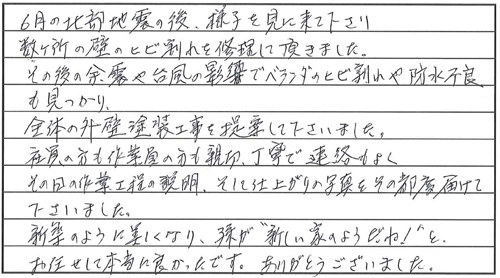 6月の北部地震の後、様子を見に来て下さり
数ヶ所の壁のヒビ割れを修理して頂きました。
その後の余震や台風の影響でベランダのヒビ割れや防水不良
も見つかり、
全体の外壁塗装工事を提案して下さいました。
社員の方も作業屋の方も親切、丁寧で連絡もよく
その日の作業工程の説明、そして仕上がりの写真をその都度届けて
下さいました。
新築のように美しくなり、孫が"新しい家のようだね!"と。
お任せして本当に良かったです。ありがとうございました。